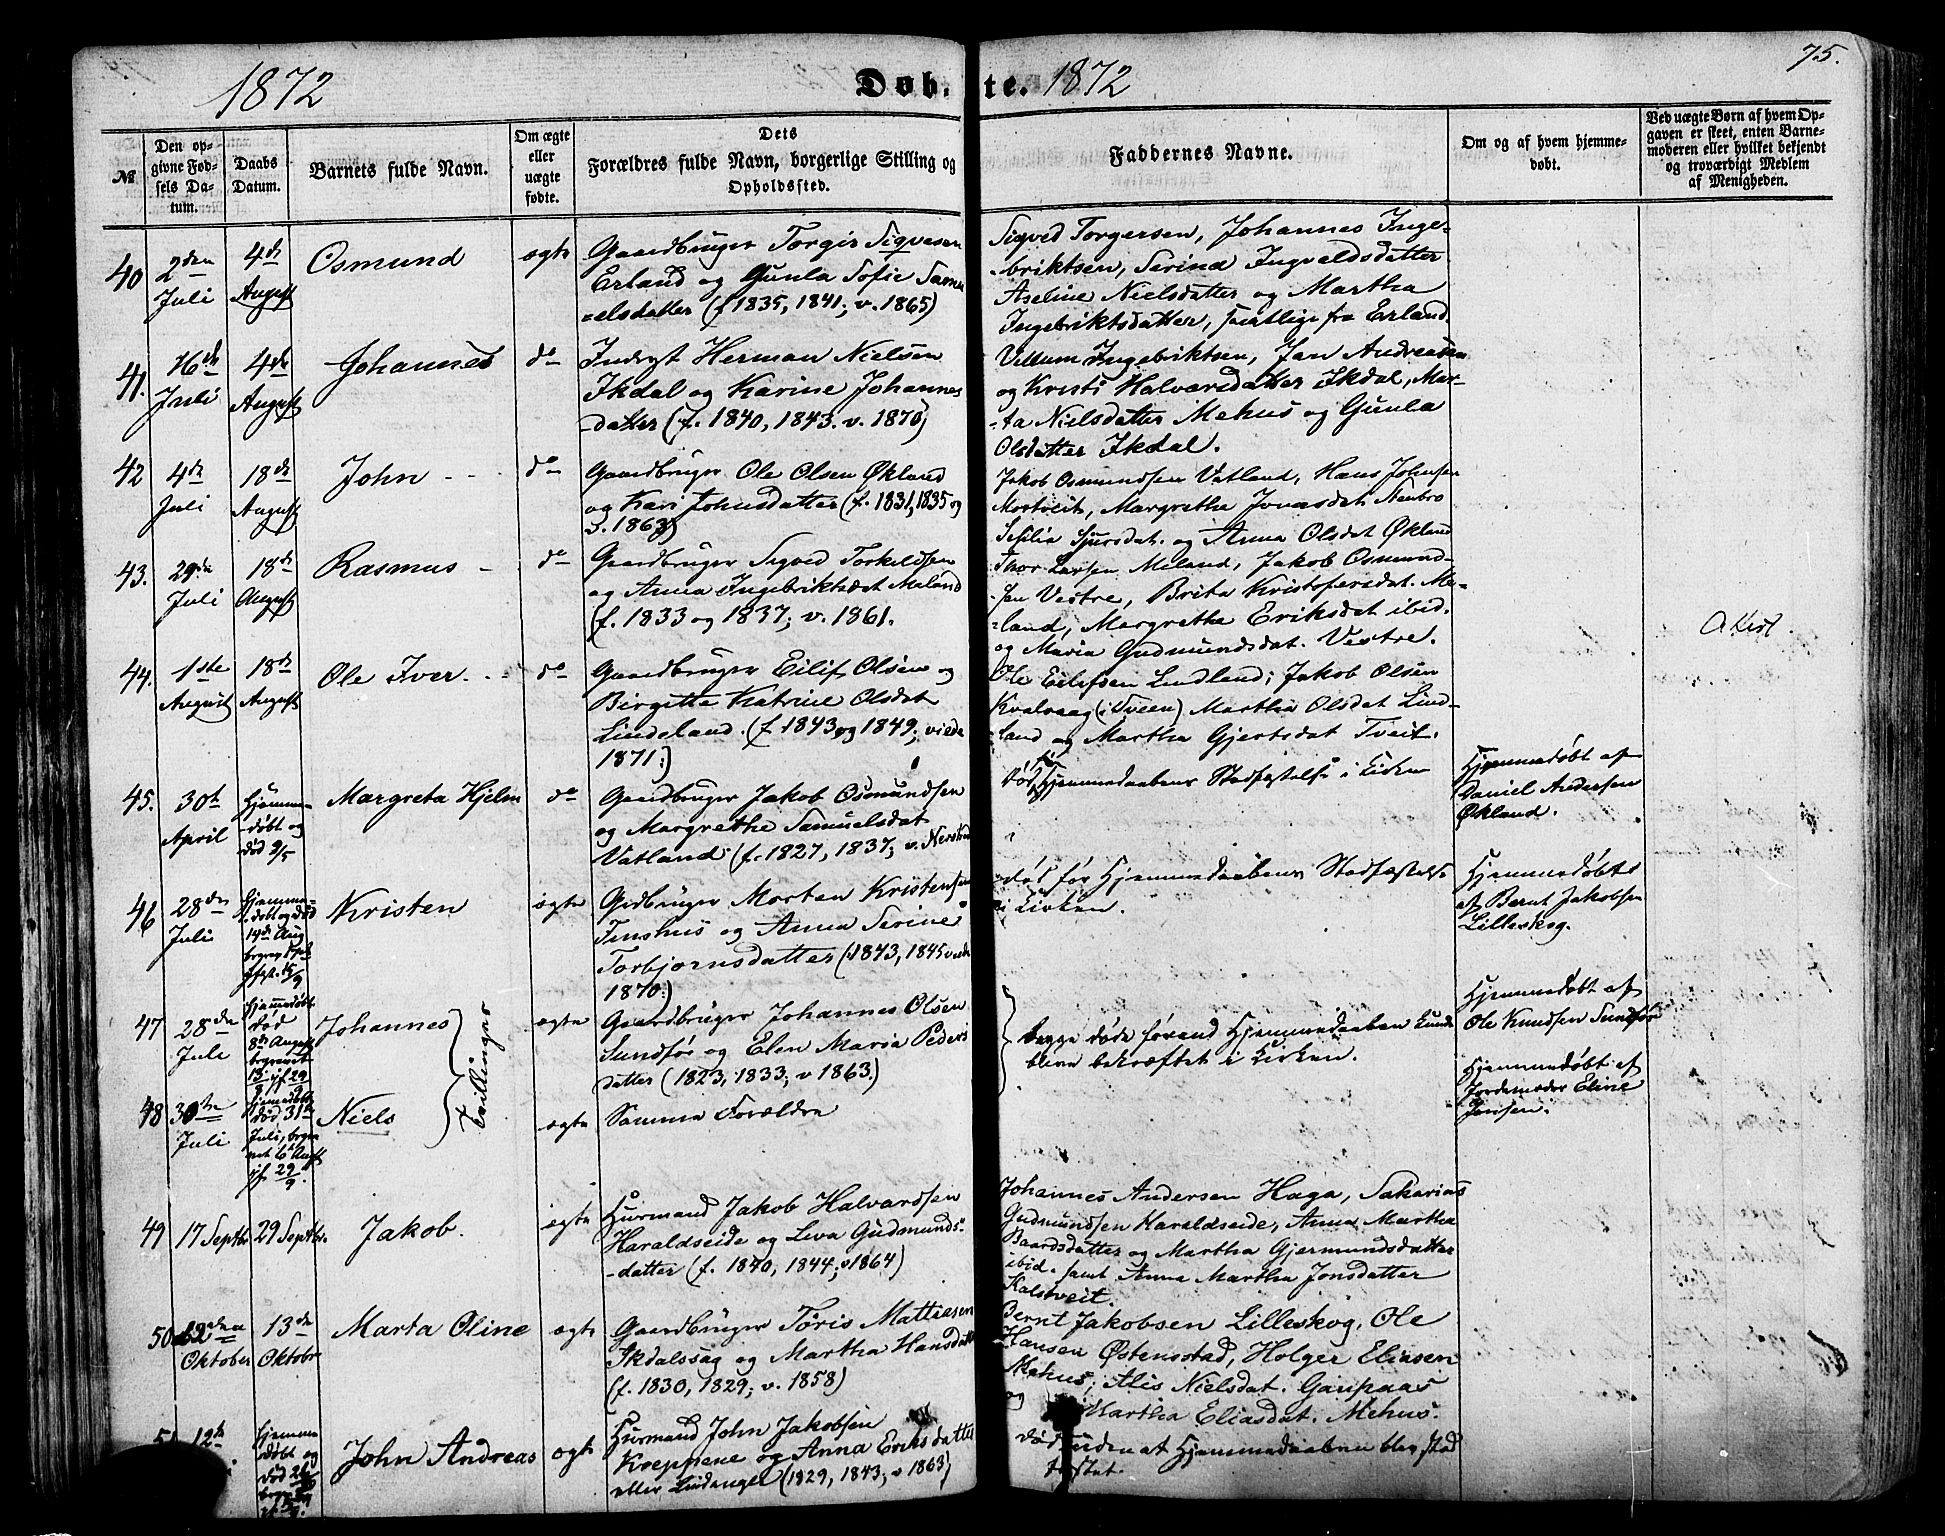 1872
Døbte. 1872
75.
№
Den opgivne Fødsels Datum.
Daabs Datum.
Barnets fulde Navn.
Om ægte eller uægte fødte.
Dets
Forældres fulde Navn, borgerlige Stilling og
Opholdssted.
Faddernes Navne.
Om og af hvem hjemmedøbt.
Ved uægte Børn af hvem Opgaven er skeet, enten Barnemoderen eller hvilket bekjendt og troværdigt Medlem af Menigheden.
40
2den Juli
4de August
Osmund
ægte
Gaardbruger Torgir Sigvesen
Erland og Gunla Sofie Samu
-elsdatter (f 1835, 1841; v. 1865)
Sigved Torgersen, Johannes Inge-
-briktsen, Serina Ingvaldsdatter
Aseline Nielsdatter og Martha
Ingebriktsdatter, samtlige fra Erland.
41.
16de Juli
4de August
Johannes
do
Inderst Herman Nielsen
Ikdal og Karine Johannes
-datter (f. 1840, 1843. v. 1870)
Villum Ingebriktsen, Jan Andreasen
og Kristi Halvarsdatter Ikdal, Mar-
-ta Nielsdatter Mehus og Gunla
Olsdatter Ikdal.
42
4de Juli
18de August
John
do
Gaardbruger Ole Olsen Økland
og Kari Johnsdatter (f. 1831, 1835 og
v. 1863)
Jakob Osmundsen Vatland, Hans Johnsen
Mortveit, Margretha Jonasdat Stenbro
Sesilia Sjursdat. og Anna Olsdat Økland
43.
29de Juli
18de August
Rasmus
do
Gaardbruger Sigved Torkeldsen
og Anna Ingebriktsdat Meland
(f. 1833 og 1837; v. 1861.
Thor Larsen Meland, Jakob Osmund-
-sen Vestre, Brita Kristofersdat. Me-
-land, Margretha Eriksdat ibid.
og Maria Gudmundsdat. Vestre.
44.
1ste August
18de August
Ole Iver
do
Gaardbruger Eilif Olsen og
Birgitta Katrine Olsdat
Lindeland. (f 1843 og 1849; viede
1871.)
Ole Eilefsen Lindland; Jakob Olsen
Kvalvaag (i Sveen) Martha Olsdat Lind-
-land og Martha Gjertsdat Tveit.
45.
30te April
Hjemme-
-døbt og
død 9/5
Margreta Hjelm
do
Gaardbruger Jakob Osmundsen
og Margrethe Samuelsdat
Vatland (f. 1827, 1837; v.
Død før Hjemmedaabens Stadfæstelse i Kirken
Hjemmedøbt af
Daniel Andersen
Økland.
46
28de Juli
Hjemme-
døbt og død
14de Aug
Kristen
ægte
Gdbruger Morten Kristensen
Tinshus og Anna Serine
Torbjørnsdatter (1843, 1845 viede
1870.)
død før Hjemmedaabens Stadfæstelse
i Kirken.
Hjemmedøbt
af Bernt Jakobsen
Lilleskog.
47
28de Juli
Hjemmedøbt
død
8de August
begravet
Johannes
Tvillinger
ægte
Gaardbruger Johannes Olsen
Sundfør og Elen Maria Peders
datter (1823, 1833; v 1863.)
begge døde førend Hjemmedaaben kunde
blive bekræftet i Kirken.
Hjemmedøbt af
Ole Knudsen Sundfør
48
30te Juli
Hjemmedøbt
død 31te
Juli, begra
vet 6te Aug
jf 29/9.
Niels
ægte
Samme Forældre
Hjemmedøbt af
Jordemoder Eline
Jansen.
49
17 Septbr
29 Septbr.
Jakob.
ægte
Huusmand Jakob Halvardsen
Haraldseide og Leva Gudmunds-
-datter (f. 1840, 1844; v 1864)
Johannes Andersen Haga, Sakarias
Gudmundsen Haraldseide, Anna Martha
Baardsdatter og Martha Gjermundsdatter
ibid. samt Anna Martha Jonsdatter
Kalstveit.
50
Oktober
13de Oktobr
Marta Oline
ægte
Gaardbruger Tøris Mathiasen
Ikdalssag og Martha Hansdatt
(f. 1830, 1829; v. 1858)
Bernt Jakobsen Lilleskog, Ole
Hansen Østenstad, Holger Eliasen
Mehus; Alis Nielsdat. Garipaas
og Martha Eliasdat. Mehus.
12te
Hjemme
døbt og
død
John Andreas
ægte
Huusmand John Jakobsen
Kreppene og Anna Eriksdatter
eller Lindanger (1829, 1843; v 1863)
død uden at Hjemmedaaben blev stad
fæstet.